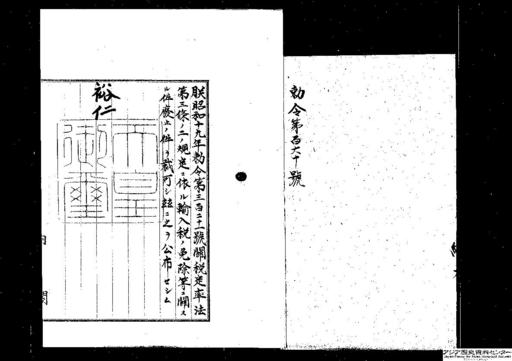 勅令第百六十號
朕昭和十九年勅令第三百二十一號關税定率法
第三條ノ二ノ規定ニ依ル輸入税ノ免除等ニ關ス
ル件廢止ノ件ヲ裁可シ玆ニ之ヲ公布セシム
裕仁
天皇
御璽
内
閣
アジア歴史資料センター